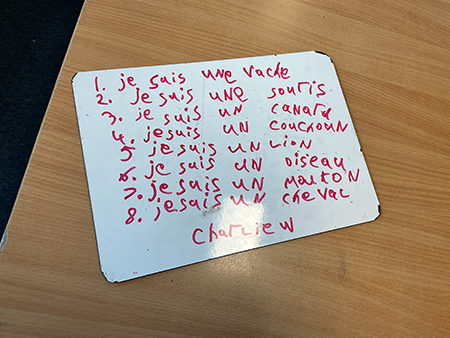 1. je suis une vache
2. je suis une soutis
3. je suis un canard
4. je suis un couchoun
5. je suis un lion
6. je suis un oiseau
7. je suis un mouton
8. je suis un cheval
Charlie W